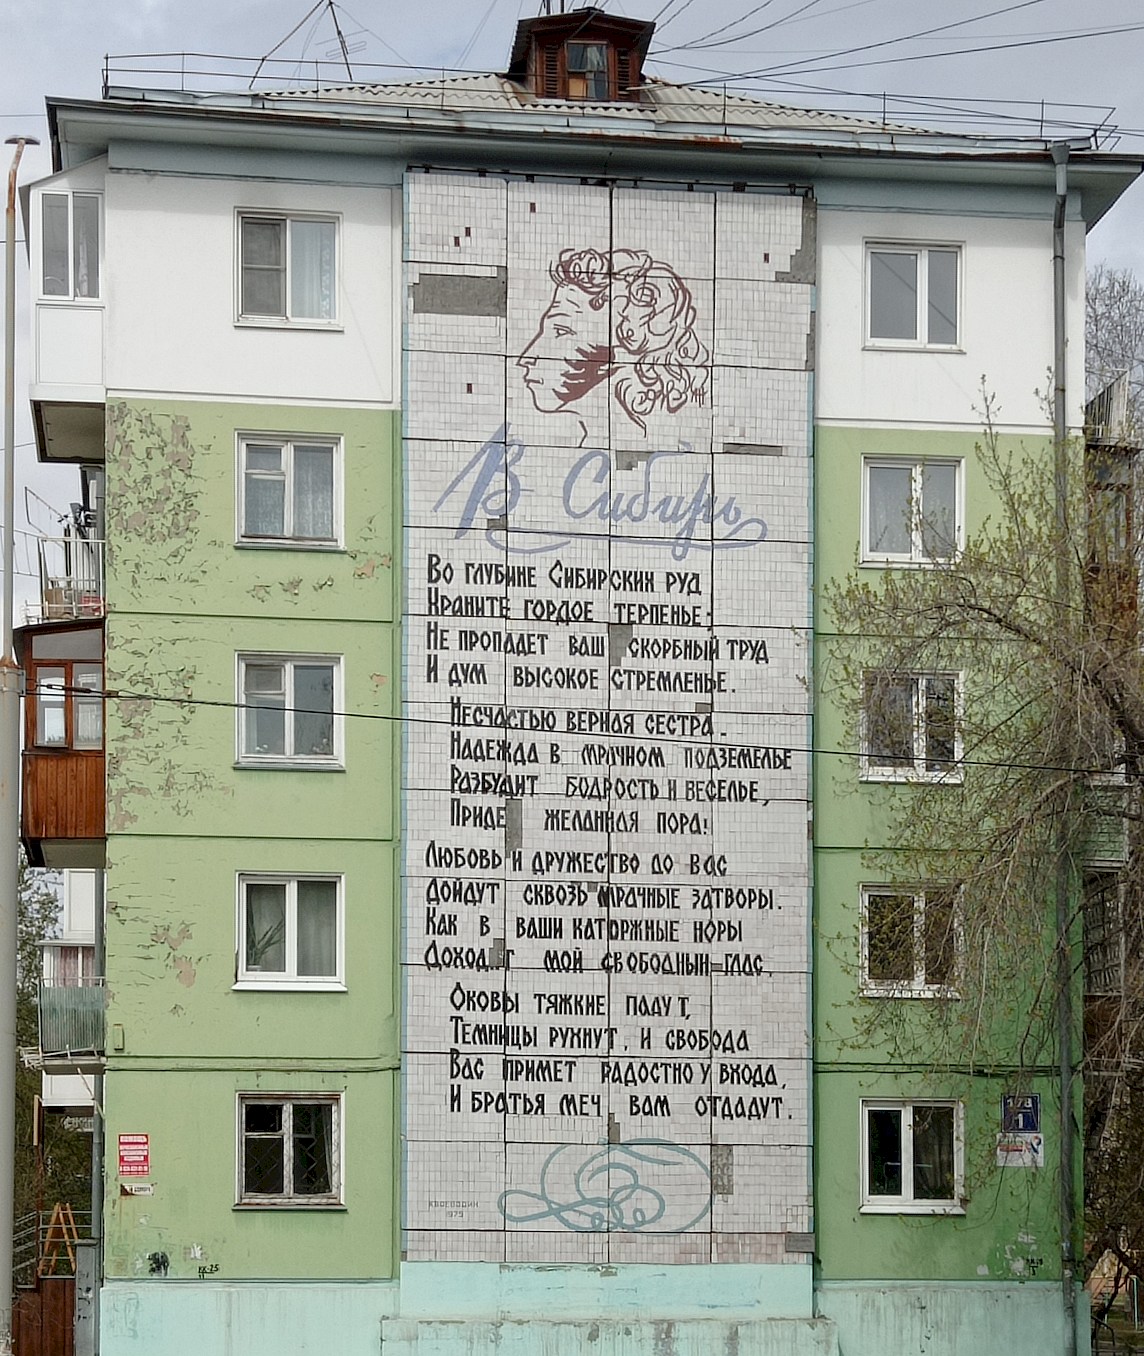 В Сибирь
Во глубине Сибирских руд
Храните гордое терпенье:
Не пропадет ваш скорбный труд
И дум высокое стремленье.
Несчастью верная сестра.
Надежда в мрачном подземелье
Разбудит бодрость и веселье,
Приде желанная пора:
Любовь и дружество до вас
Дойдут сквозь мрачные затворы.
Как в ваши каторжные норы
Доходит мой свободный глас.
Оковы тяжкие падут,
Темницы рухнут, и свобода
Вас примет радостно у входа,
И братья меч вам отдадут.
К Воеводин
1975
178
1
КК-25